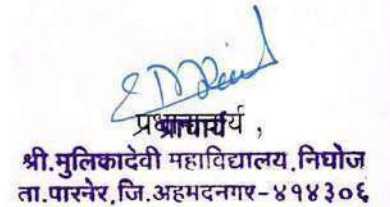 प्राचार्य ,
श्री.मुलिकादेवी महाविद्यालय,निघोज
ता.पारनेर,जि.अहमदनगर-४१४३०६